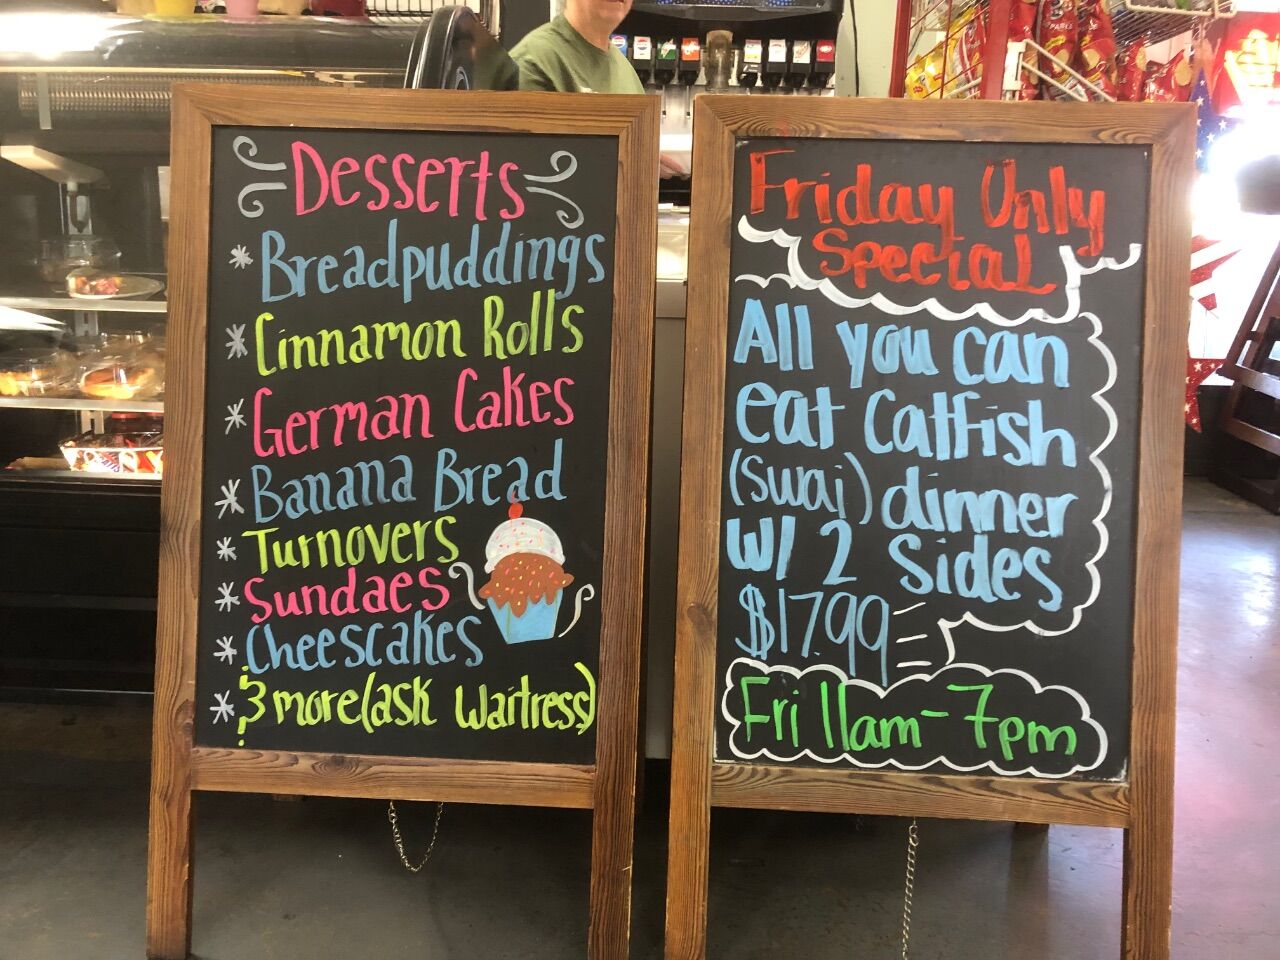 Desserts
* Breadpuddings
* Cinnamon Rolls
* German Cakes
* Banana Bread
* Turnovers
* Sundaes
* Cheesecakes
* 3 more (ask Waitress)
Friday Only
Special
All you can
eat Catfish
(swai) dinner
W/ 2 Sides
$17.99
Fri 11am-7pm